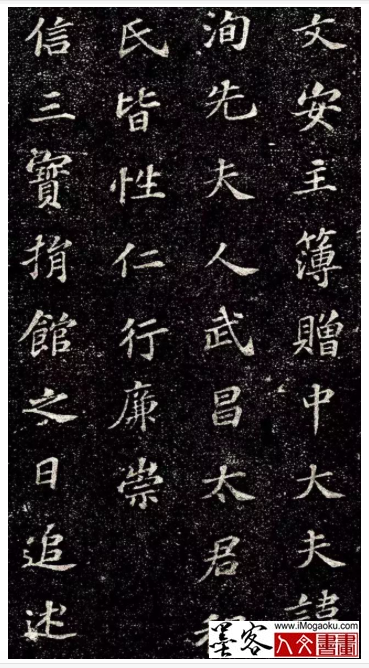 文安主簿贈中大夫諱
洵先夫人武昌太君程
氏皆性仁行廉崇
信三寶捐館之日追述
www.iMogaoku.com
墨客人文書畫